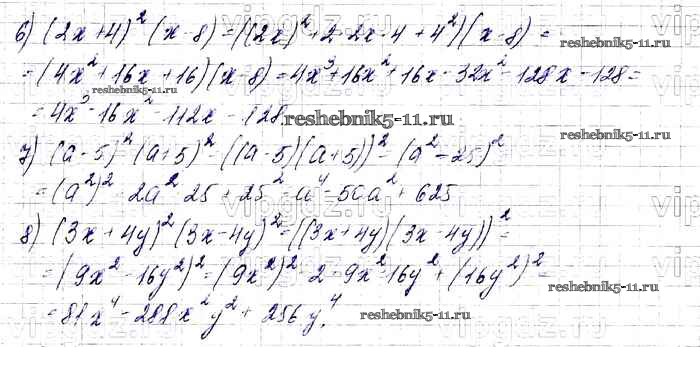 6) (2x+4)²(x-8) = ((2x)²+2·2x·4+4²)(x-8) =
= (4x²+16x+16)(x-8) = 4x³+16x²+16x-32x²-128x-128 =
= 4x³-16x²-112x-128
7) (a-5)²(a+5)² = ((a-5)(a+5))² = (a²-25)²
= (a²)² - 2a²·25 + 25² = a⁴-50a²+625
8) (3x+4y)²(3x-4y)² = ((3x+4y)(3x-4y))² =
= (9x²-16y²)² = (9x²)² - 2·9x²·16y² + (16y²)² =
= 81x⁴ - 288x²y² + 256y⁴.
reshebnik5-11.ru
reshebnik5-11.ru
reshebnik5-11.ru
reshebnik5-11.ru
reshebnik5-11.ru
reshebnik5-11.ru